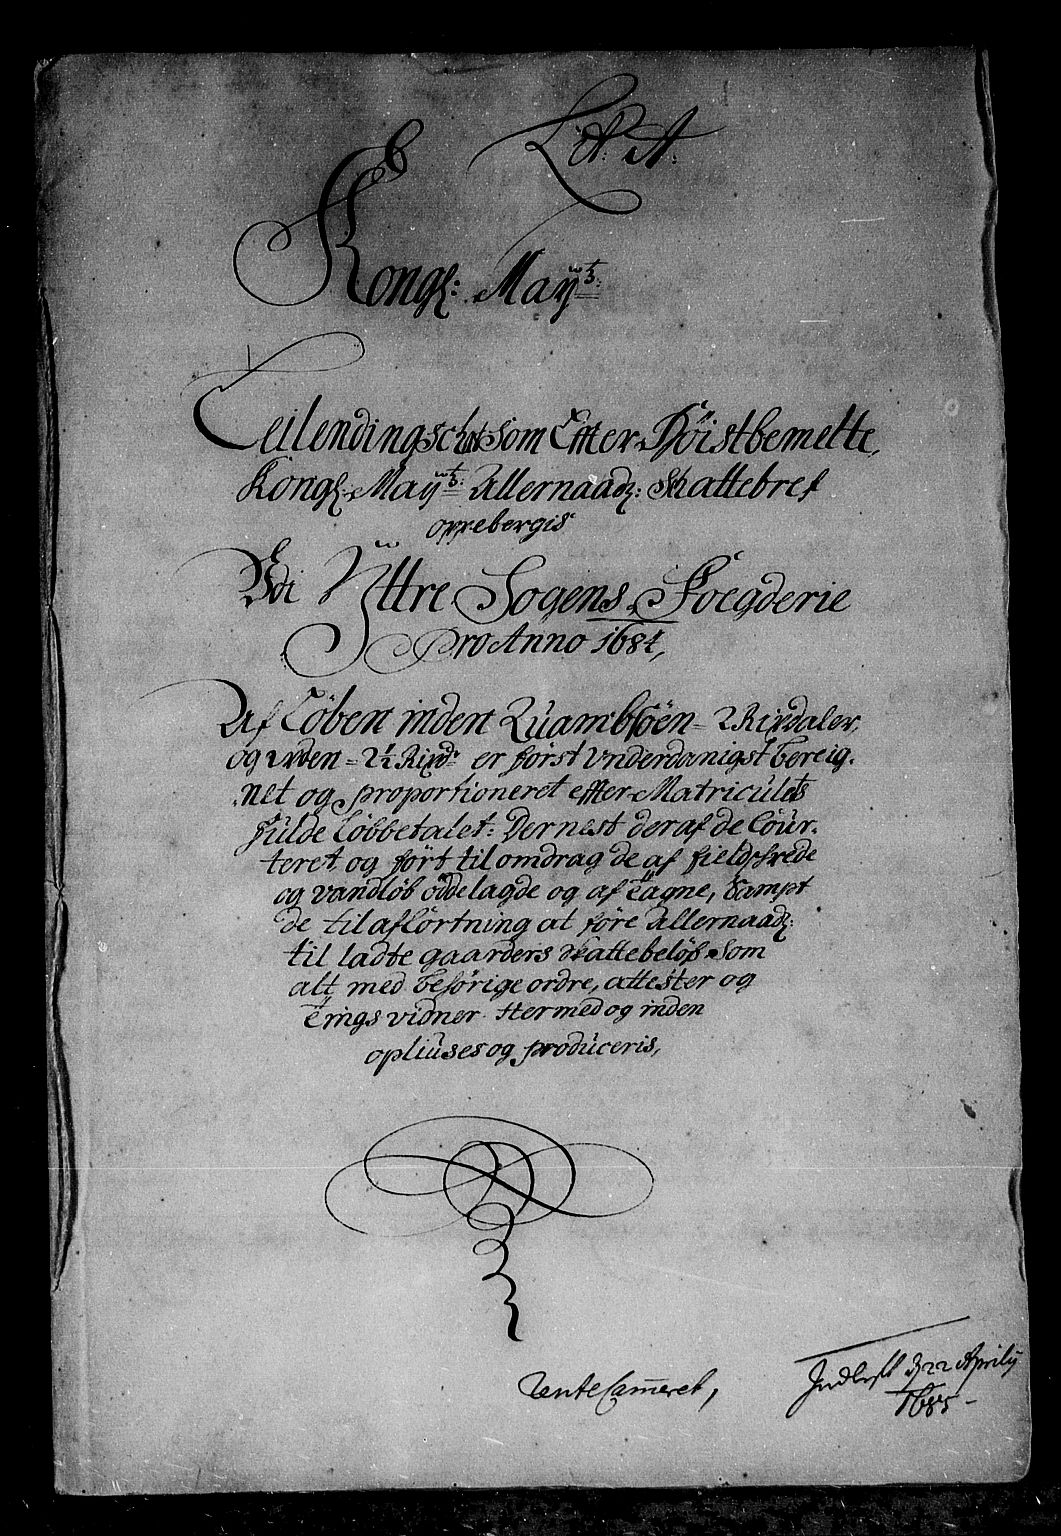 Lit: A:
Kongl: Mayts:
Leilendingschat som Effter Høistbemelte,
Kongl: Mayts: Allernaadg: Skattebref
oppebergis
Udi Yttre Sogens Foegderie
Pro Anno 1684,
Af Løben inden Quambsöen = 2 Rixdaler,
og uden = 2½ Rixdr er først Underdanigst bereig-
net og proportioneret effter Matriculets
fulde Løbbetalet: Dernest deraf de Cour-
teret, og ført til omdrag de af fieldskrede
og vandløb øddelagde og af Tagne, Sampt
de til afkortning at føre allernaadg:
til ladte gaarders skattebeløb Som
alt med behørige ordre, attester og
Tings vidner Hermed og inden
opliuses og produceris,
RenteCammeret,
Indleft d 22 Aprily
1685-